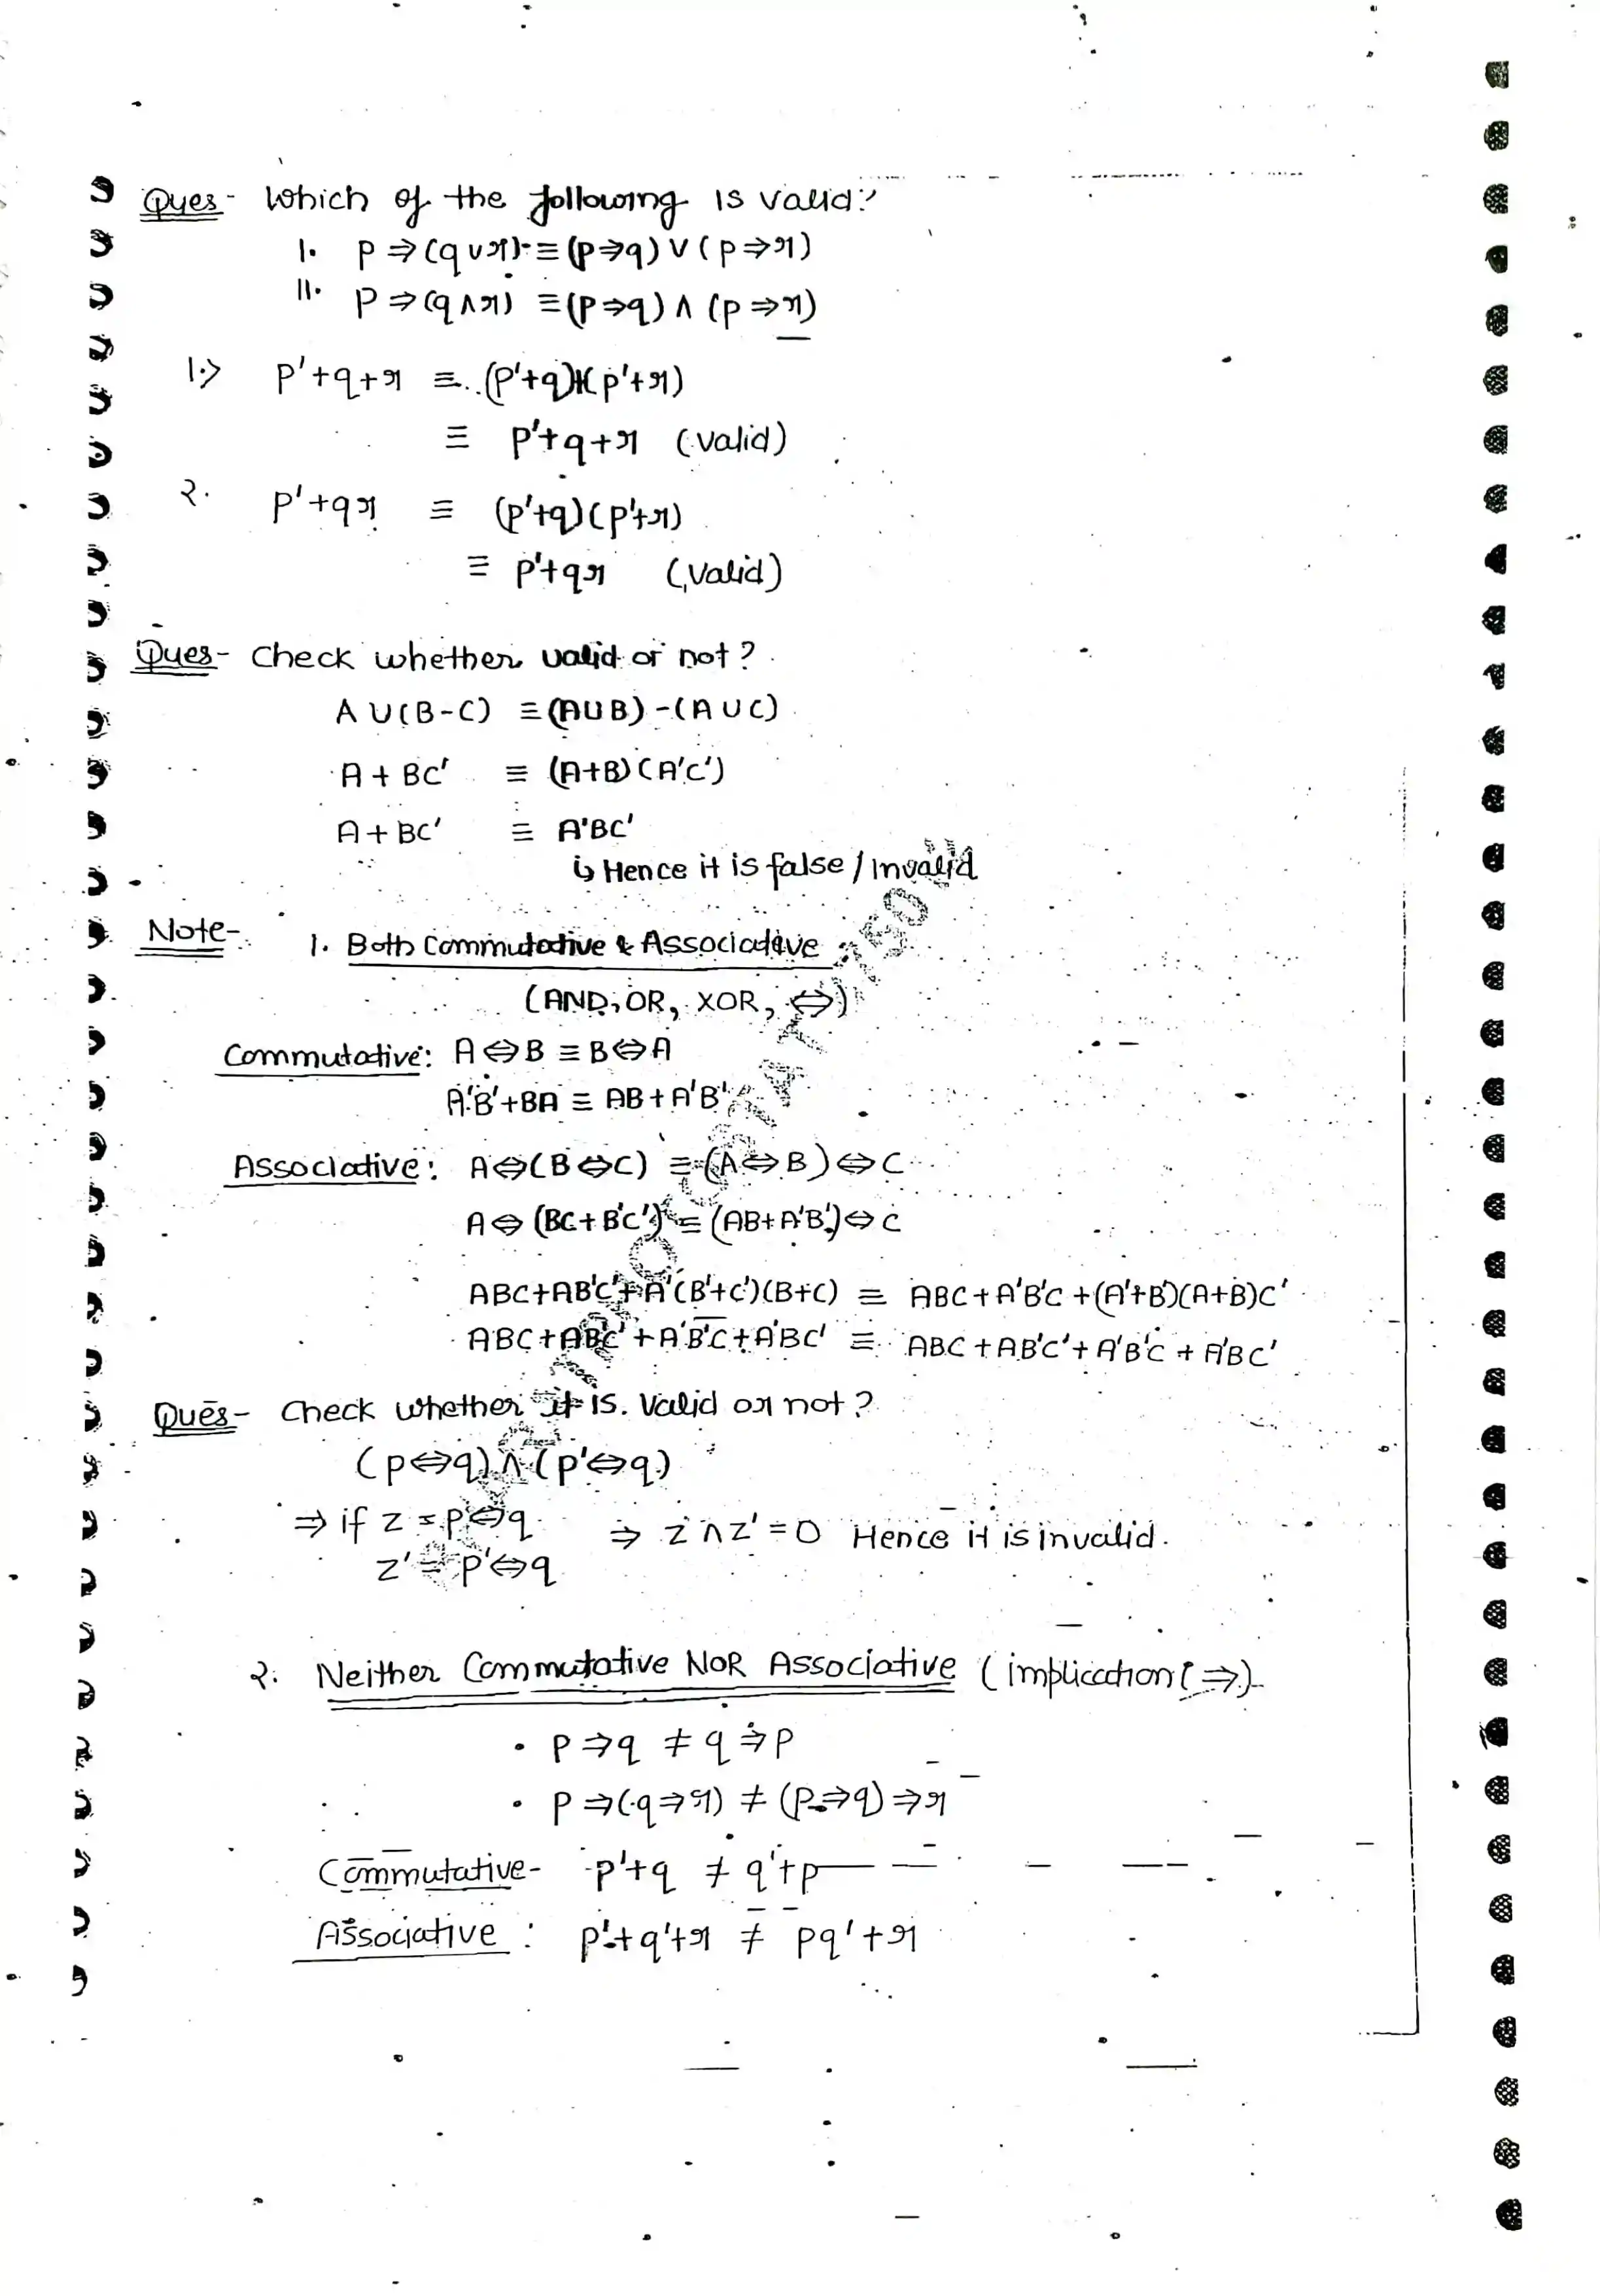 Ques- Which of the following is valid?
I. p⇒(q∨r) ≡ (p⇒q)∨(p⇒r)
II. p⇒(q∧r) ≡ (p⇒q)∧(p⇒r)
1.> p'+q+r ≡ (p'+q)+(p'+r)
≡ p'+q+r (valid)
2. p'+qr ≡ (p'+q)(p'+r)
≡ p'+qr (valid)
Ques- Check whether valid or not?
A∪(B-C) ≡ (A∪B)-(A∪C)
A+BC' ≡ (A+B)(A'C')
A+BC' ≡ A'BC'
↳ Hence it is false/Invalid
Note- 1. Both Commutative & Associative:
(AND, OR, XOR, ⇔)
Commutative: A⇔B ≡ B⇔A
A'B'+BA ≡ AB+A'B'
Associative: A⇔(B⇔C) ≡ (A⇔B)⇔C
A⇔(BC+B'C') ≡ (AB+A'B')⇔C
ABC+AB'C'+A'(B'+C')(B+C) ≡ ABC+A'B'C+(A'+B')(A+B)C'
ABC+AB'C'+A'B'C+A'BC' ≡ ABC+AB'C'+A'B'C+A'BC'
Ques- Check whether it is valid or not?
(p⇔q)∧(p'⇔q)
⇒ if z = p⇔q ⇒ z∧z'=0 Hence it is invalid.
z' = p'⇔q
2. Neither Commutative NOR Associative (implication(⇒)
• p⇒q ≠ q⇒p
• p⇒(q⇒r) ≠ (p⇒q)⇒r
Commutative- p'+q ≠ q'+p
Associative: p'+q'+r ≠ pq'+r